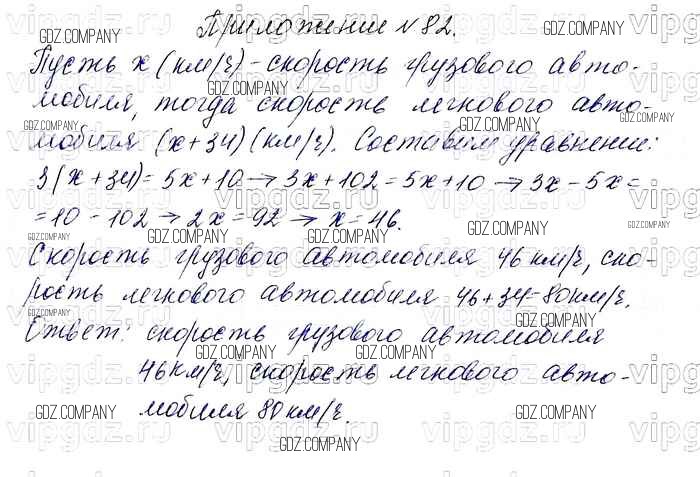 Приложение № 82.
Пусть x (км/ч) – скорость грузового авто-
мобиля, тогда скорость легкового авто-
мобиля (x+34) (км/ч). Составим уравнение:
3(x+34)=5x+10 → 3x+102=5x+10 → 3x-5x=
=10-102 → 2x=92 → x=46.
Скорость грузового автомобиля 46 км/ч, ско-
рость легкового автомобиля 46+34=80км/ч.
Ответ: скорость грузового автомобиля
46км/ч, скорость легкового авто-
мобиля 80 км/ч.
GDZ.COMPANY
vipgdz.ru